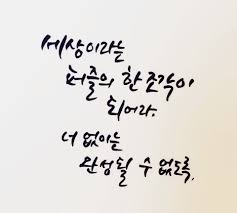 세상이라는
퍼즐의 한 조각이
되어라.
너 없이는
완성될 수 없도록.